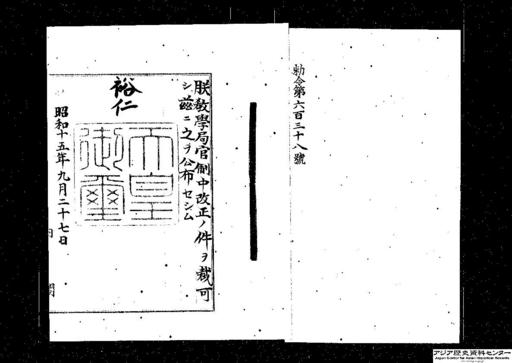 勅令第六百三十八號
朕教學局官制中改正ノ件ヲ裁可
シ茲ニ之ヲ公布セシム
裕仁
天皇
御璽
昭和十五年九月二十七日
内 閣
アジア歴史資料センター
Japan Center for Asian Historical Records